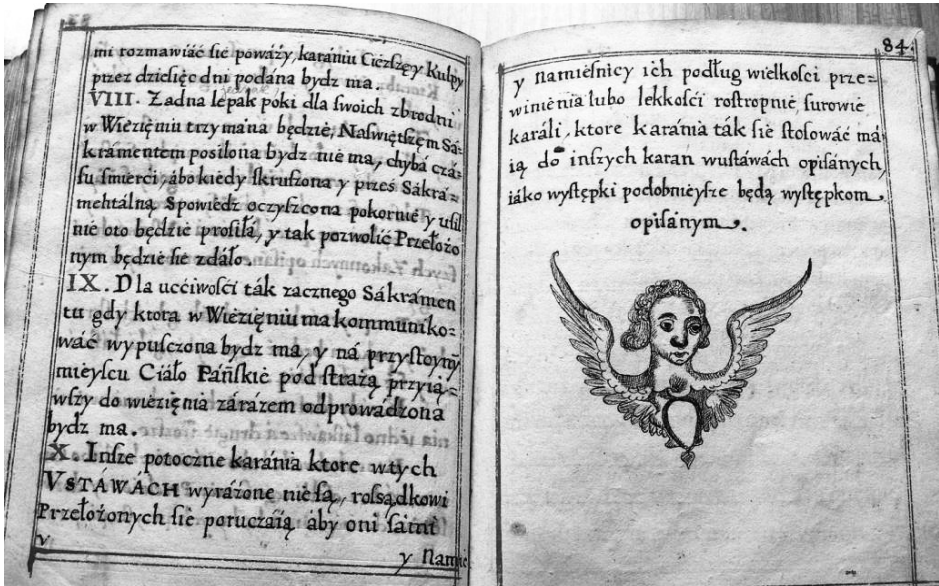 mi rozmawiáć ſie poważy, karániu Cięzſzęy Kulpy
przez dzieſięc dni podána bydz ma.
VIII. Żadna lepak poki dla ſwoich zbrodni
w Więzięniu trzymana będzie, Naświętſzęm Sá=
kramentem poſilona bydz nie ma, chybá czá=
ſu śmierći, ábo kiedy ſkruſzona y przes Sákra=
mentálną Spowiedź oczyſzcona pokornie y uſil
nie oto będzie proſiłá, y tak pozwolić Przełożo
nym będzie ſie zdáło.
IX. Dla uććiwośći ták zacznego Sákrámen
tu gdy ktora w Więzięniu ma kommuniko=
wáć wypuſczona bydz má, y ná przyſtoyny
mieyſcu Ciáło Páńſkie pod ſtrażą przyią=
wſzy do więzięnia zárázem odprowadzona
bydz ma.
X. Inſze potoczne karánia ktore w tych
VSTÁWÁCH wyráżone nie ſą, roſsądkowi
Przełożonych ſie poruczáią áby oni ſámi
y Namie
84.
y Namieśnicy ich podług wielkości prze=
winienia lubo lekkośći roſtropnie ſurowie
karáli, ktore karánia ták ſie ſtoſowáć má
ią do inſzych karan wuſtáwách opiſánych,
iáko wyſtępki podobnieyſze będą wyſtępkom
opiſánym.